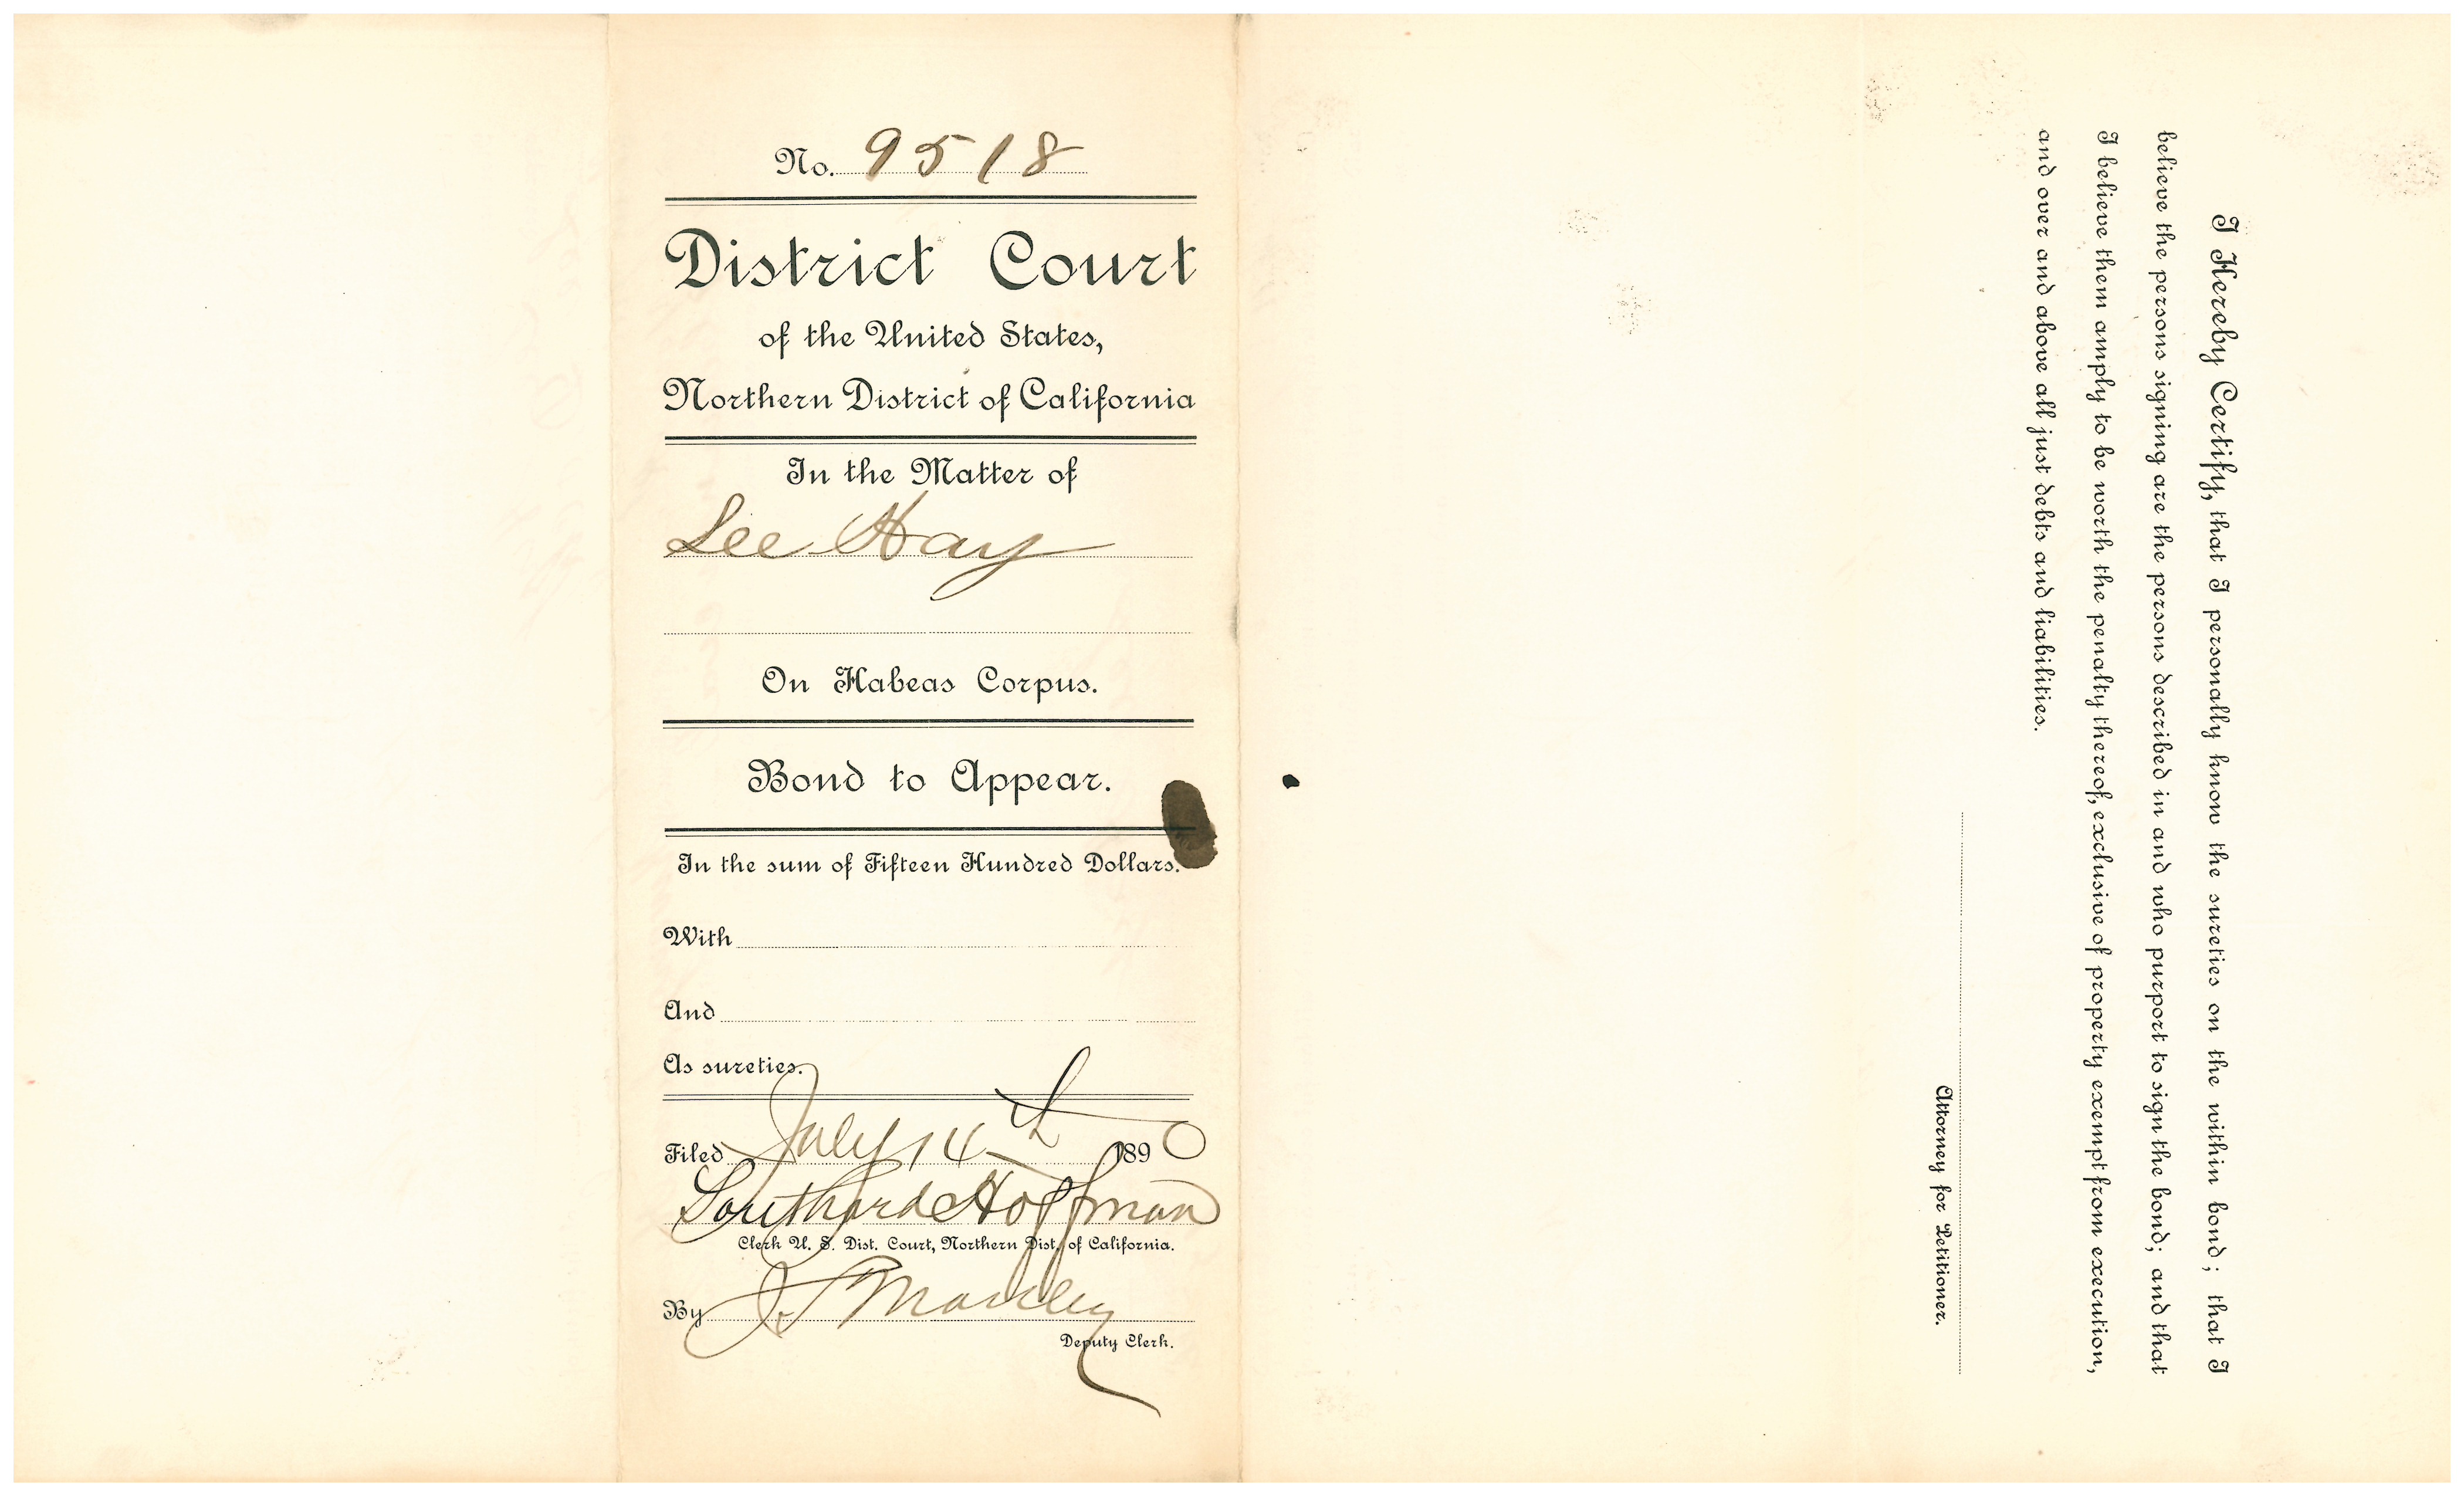 No. 9518
District Court
of the United States,
Northern District of California
In the Matter of
Lee Hay
On Habeas Corpus.
Bond to Appear.
In the sum of Fifteen Hundred Dollars.
With
And
As sureties.
Filed July 14th 1890
Southard Hoffman
Clerk U. S. Dist. Court, Northern Dist. of California.
By J. S. Manley
Deputy Clerk.
I Hereby Certify, that I personally know the sureties on the within bond; that I
believe the persons signing are the persons described in and who purport to sign the bond; and that
I believe them amply to be worth the penalty thereof, exclusive of property exempt from execution,
and over and above all just debts and liabilities.
Attorney for Petitioner.